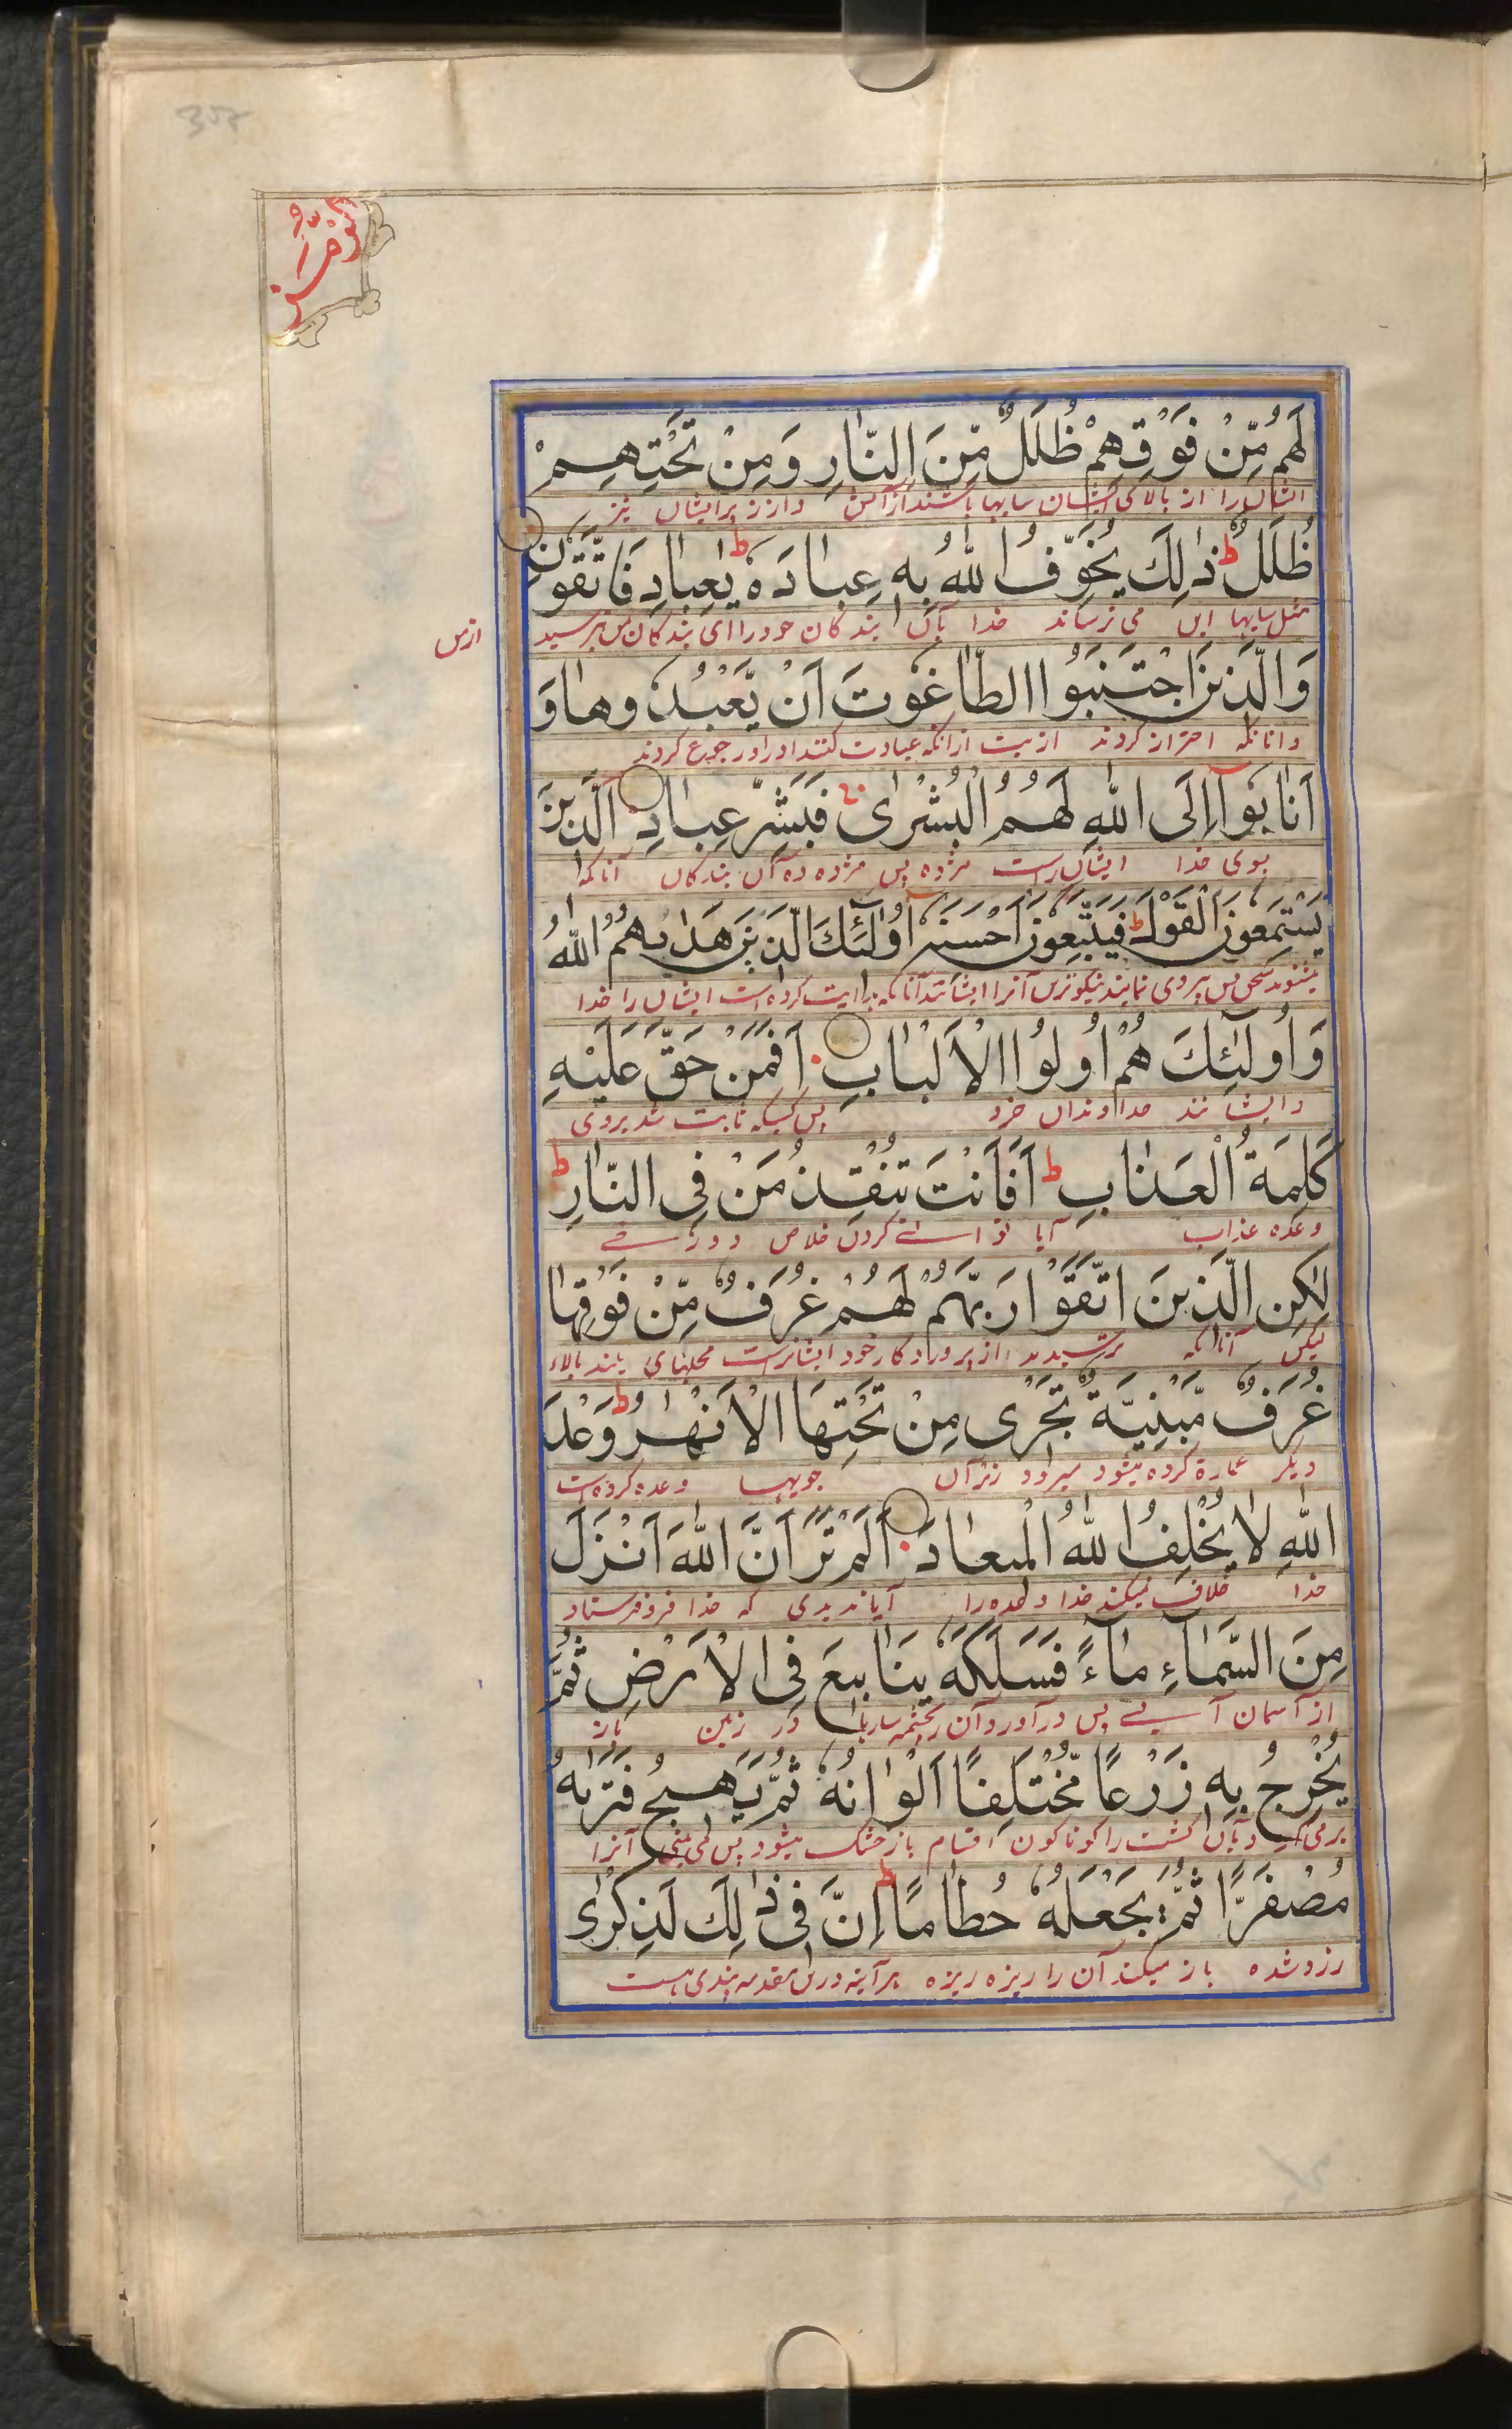 الزمر
لَهُم مِّنْ فَوْقِهِمْ ظُلَلٌ مِّنَ النَّارِ وَمِنْ تَحْتِهِمْ
ایشان را از بالای ایشان سایبها باشند از آتش و از زیر ایشان نیز
ظُلَلٌ ط ذٰلِكَ يُخَوِّفُ اللّٰهُ بِهٖ عِبَادَهٗ ط يٰعِبَادِ فَاتَّقُوْنِ
مثل سایبها این می ترساند خدا بآن بندکان خود را ای بندکان من بترسید
از من
وَالَّذِيْنَ اجْتَنَبُوا الطَّاغُوتَ اَنْ يَّعْبُدُوهَا وَ
و آنانکه احتراز کردند از بت ازانکه عبادت کنند او را و رجوع کردند
اَنَابُوآ اِلَى اللّٰهِ لَهُمُ الْبُشْرٰى فَبَشِّرْ عِبَادِ الَّذِيْنَ
بسوی خدا ایشان راست مژده پس مژده ده آن بندکان آنانکه
يَسْتَمِعُوْنَ الْقَوْلَ ط فَيَتَّبِعُوْنَ اَحْسَنَهٗ اُولٰٓئِكَ الَّذِيْنَ هَدٰىهُمُ اللّٰهُ
میشنوند سخن پس پیروی نمایند نیکوترین آنرا ایشانند آنانکه هدایت کرده است ایشان را خدا
وَاُولٰٓئِكَ هُمْ اُولُوا الْاَلْبَابِ اَفَمَنْ حَقَّ عَلَيْهِ
و ایشانند خداوندان خرد پس کسیکه ثابت شد بروی
كَلِمَةُ الْعَذَابِ ط اَفَاَنْتَ تُنْقِذُ مَنْ فِى النَّارِ ط
وعده عذاب آیا توانی کردن خلاص دوزخی
لٰكِنِ الَّذِيْنَ اتَّقَوْا رَبَّهُمْ لَهُمْ غُرَفٌ مِّنْ فَوْقِهَا
لیکن آنانکه ترسیدند از پروردکار خود ایشانراست محلهای بلند بالاء
غُرَفٌ مَّبْنِيَّةٌ تَجْرِى مِنْ تَحْتِهَا الْاَنْهٰرُ ط وَعْدَ
دیکر عمارة کرده میشود میرود زیر آن جویها وعده کرده است
اللّٰهِ لَا يُخْلِفُ اللّٰهُ الْمِيعَادَ اَلَمْ تَرَ اَنَّ اللّٰهَ اَنْزَلَ
خدا خلاف نمیکند خدا وعده را آیا ندیدی که خدا فرو فرستاد
مِنَ السَّمَآءِ مَآءً فَسَلَكَهٗ يَنَابِيعَ فِى الْاَرْضِ ثُمَّ
از آسمان آبی پس درآورد آن در زمین باز
يُخْرِجُ بِهٖ زَرْعًا مُّخْتَلِفًا اَلْوَانُهٗ ثُمَّ يَهِيجُ فَتَرٰىهُ
بآن کشت را کوناکون اقسام باز خشک میشود پس می بینی آنرا
مُصْفَرًّا ثُمَّ يَجْعَلُهٗ حُطَامًا ط اِنَّ فِى ذٰلِكَ لَذِكْرٰى
زرد شده باز میکند آن را ریزه ریزه هرآینه درین مقدمه پندی هست